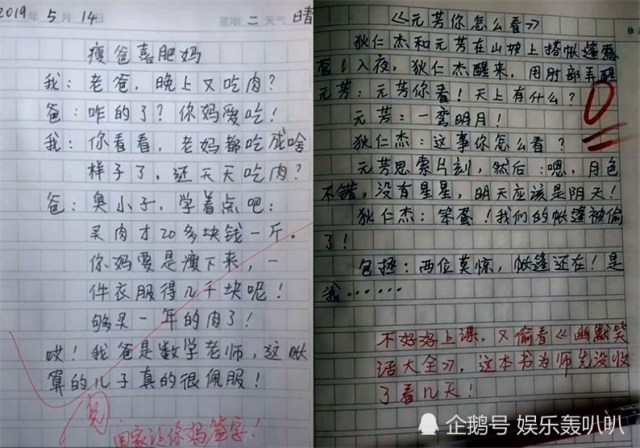 2019年 5月 14日 星期 二 天气 晴
瘦爸喜肥妈
我：老爸，晚上又吃肉？
爸：咋的了？你妈爱吃！
我：你看看，老妈都吃成啥
样子了，还天天吃肉？
爸：臭小子，学着点吧：
买肉才20多块钱一斤。
你妈要是瘦下来，一
件衣服得几千块呢！
够买一年的肉了！
哎！我爸是数学老师，这账
算的儿子真的很佩服！
阅
回家让你妈签字！
《元芳你怎么看》
狄仁杰和元芳在山坡上搭帐篷露
营！入夜，狄仁杰醒来，用肘部弄醒
元芳：元芳你看！天上有什么？
元芳：一弯明月！
狄仁杰：这事你怎么看？
元芳思索片刻，然后：嗯，月色
不错，没有星星，明天应该是阴天！
狄仁杰：笨蛋！我们的帐篷被偷
了！
包拯：两位莫惊，帐篷还在！是
我……
0
不好好上课，又偷看《幽默笑
话大全》，这本书为师先没收
了看几天！
企鹅号 娱乐轰叭叭